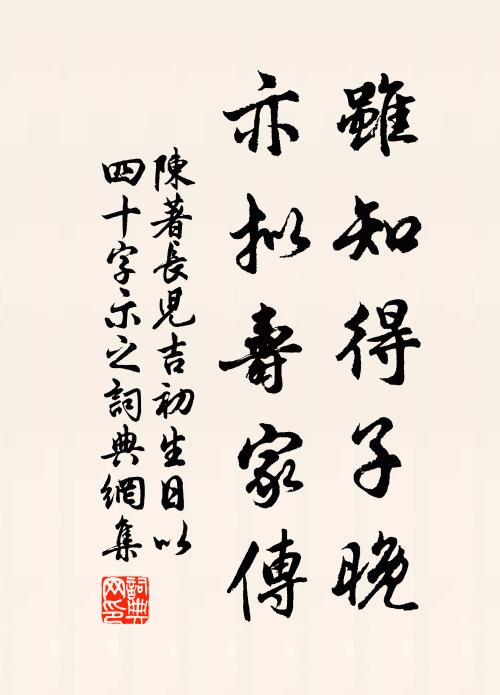 雖知得子晚
亦拟壽家傳
陳著長児吉初生日以
四十字示之詞典網集
詞典網印